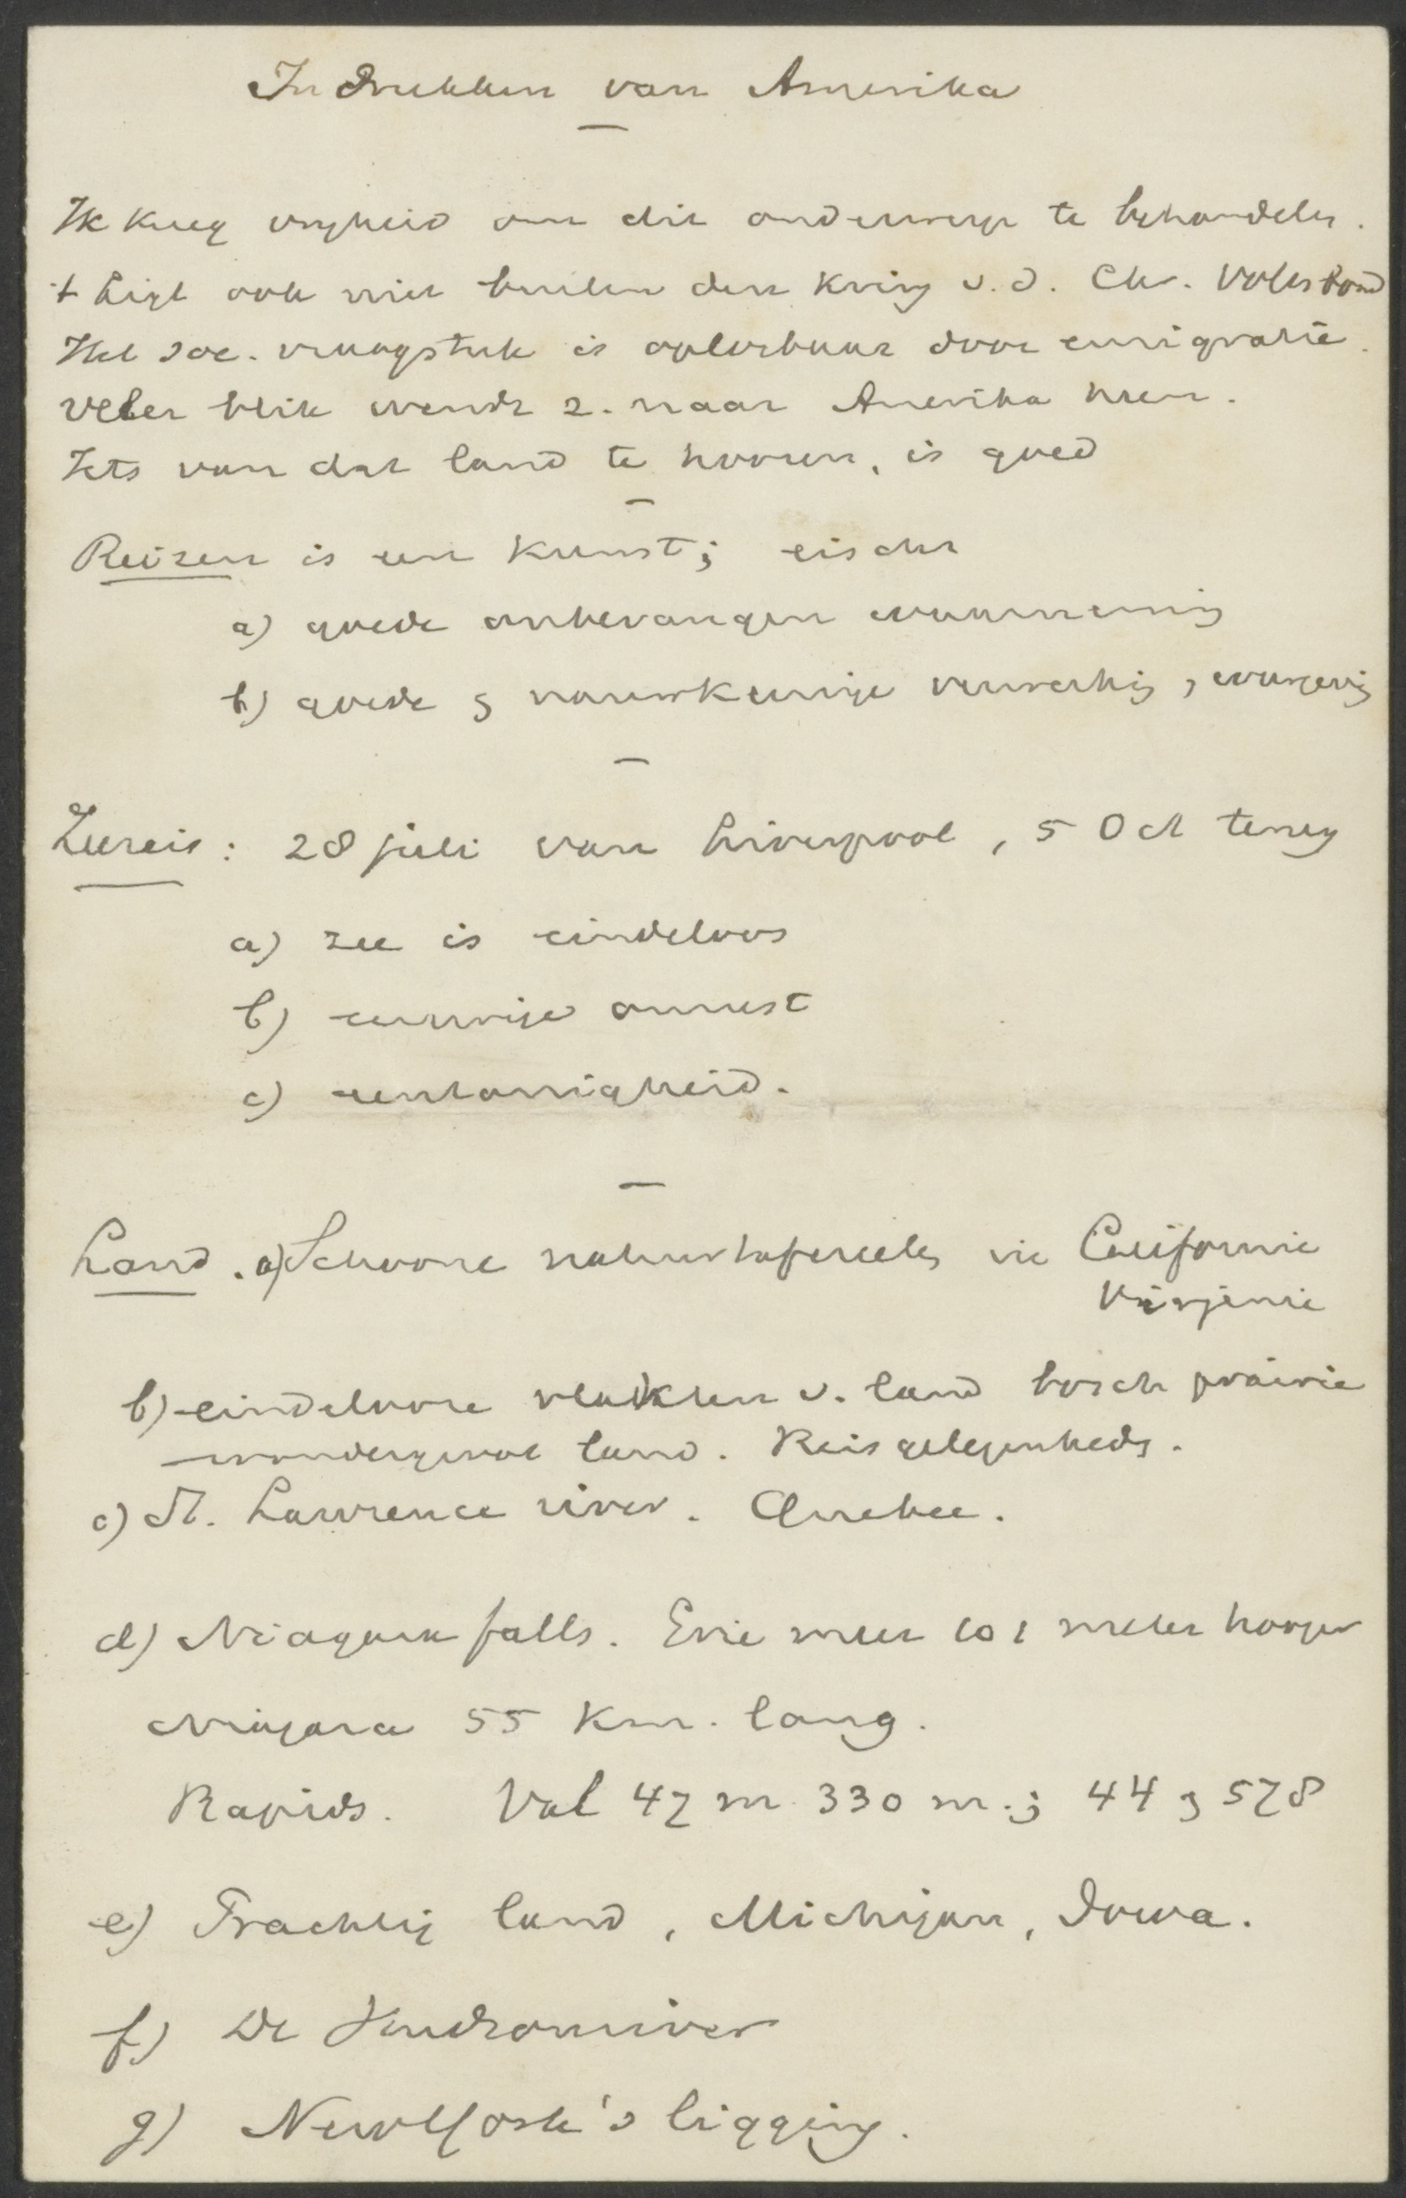 Indrukken van Amerika
Ik kreeg vrijheid om dit onderwerp te behandelen.
't Ligt ook niet buiten den kring v.d. Chr. Volksbond
Het soc. vraagstuk is oplosbaar door emigratie.
Veler blik wendt z. naar Amerika heen.
Iets van dat land te hooren, is goed
Reizen is een kunst; eischt
a) goede onbevangen waarneming
b) goede & nauwkeurige verwerking,
Zeereis: 28 juli van Liverpool, 5 Oct terug
a) zee is eindeloos
b) eeuwige onrust
c) eentonigheid.
Land. a) Schoone natuurtafereelen in Californie
Virginie
b) eindelooze vlakten v. land bosch prairie
land. Reisgelegenheds.
c) St. Lawrence river. Quebec.
d) Niagara falls. Erie meer 101 meter hooger
Niagara 55 Km. lang.
Rapids. Val 47 m 330 m.; 44 & 578
e) Prachtig land, Michigan, Iowa.
f) De Hudsonriver
g) New York's ligging.